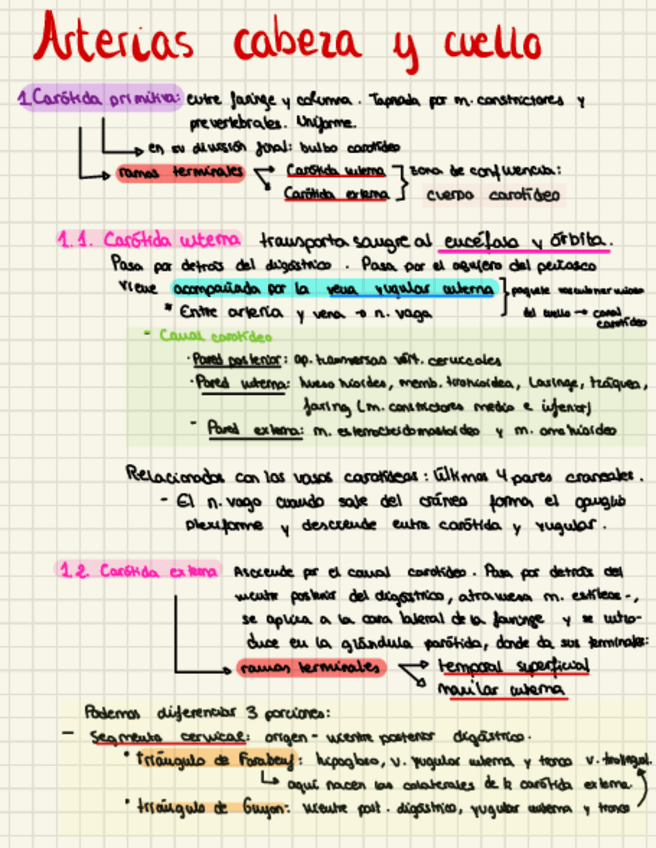 Arterias cabeza y cuello
1. Carótida primitiva: entre faringe y columna. Tapnada por m. constrictores y
prevertebrales. Uniforme.
en su división final: bulbo carotídeo
ramas terminales Carótida interna zona de confluencia:
Carótida externa cuerpo carotídeo
1.1. Carótida interna transporta sangre al encéfalo y órbita.
Pasa por detrás del digástrico. Pasa por el agujero del peñasco
viene acompañada por la vena yugular interna paquete vasculonervioso
* Entre arteria y vena → n. vago del cuello → canal
carotídeo
- Canal carotídeo
· Pared posterior: ap. transversas vért. cervicales
· Pared interna: hueso hioides, memb. tirohioidea, Laringe, tráquea,
faring (m. constrictores medio e inferior)
- Pared externa: m. esternocleidomastoideo y m. omohioideo
Relacionados con los vasos carotídeos: últimos 4 pares craneales.
- El n. vago cuando sale del cráneo forma el ganglio
plexiforme y desciende entre carótida y yugular.
1.2. Carótida externa Asciende por el canal carotídeo. Pasa por detrás del
vientre posterior del digástrico, atraviesa m. estíleos-,
se aplica a la cara lateral de la faringe y se intro-
duce en la glándula parótida, donde da sus terminales:
ramas terminales temporal superficial
maxilar interna
Podemos diferenciar 3 porciones:
- Segmento cervical: origen - vientre posterior digástrico.
· Triángulo de Farabeuf: hipogloso, v. yugular interna y tronco v. tirolingual.
aquí nacen las colaterales de la carótida externa.
· triángulo de Guyon: vientre post. digástrico, yugular interna y tronco